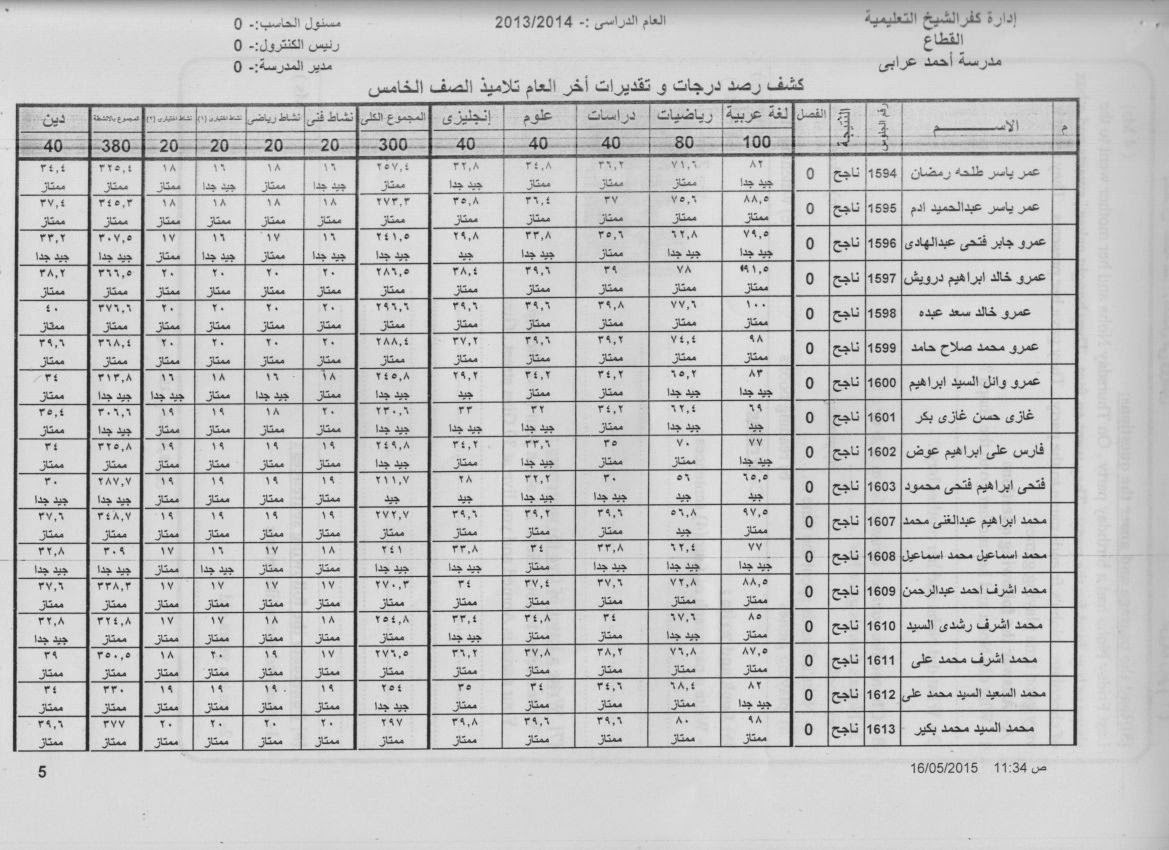 إدارة كفرالشيخ التعليمية
القطاع
مدرسة أحمد عرابى
العام الدراسى :- 2013/2014
مسئول الحاسب:- 0
رئيس الكنترول:- 0
مدير المدرسة:- 0
كشف رصد درجات و تقديرات أخر العام تلاميذ الصف الخامس
م الاســــم رقم الجلوس النتيجة الفصل لغة عربية رياضيات دراسات علوم إنجليزى المجموع الكلى نشاط فنى نشاط رياضى نشاط اختيارى (١) نشاط اختيارى (٢) المجموع بالانشطة دين
100 80 40 40 40 300 20 20 20 20 380 40
عمر ياسر طلحه رمضان 1594 ناجح 0 ٨٢ ٧١,٦ ٣٦,٢ ٣٤,٨ ٣٢,٨ ٢٥٧,٤ ١٦ ١٨ ١٦ ١٨ ٣٢٥,٤ ٣٤,٤
جيد جدا ممتاز ممتاز ممتاز جيد جدا ممتاز جيد جدا ممتاز جيد جدا ممتاز ممتاز ممتاز
عمر ياسر عبدالحميد ادم 1595 ناجح 0 ٨٨,٥ ٧٥,٦ ٣٧ ٣٦,٤ ٣٥,٨ ٢٧٣,٣ ١٨ ١٨ ١٨ ١٨ ٣٤٥,٣ ٣٧,٤
ممتاز ممتاز ممتاز ممتاز ممتاز ممتاز ممتاز ممتاز ممتاز ممتاز ممتاز ممتاز
عمرو جابر فتحى عبدالهادى 1596 ناجح 0 ٧٩,٥ ٦٢,٨ ٣٥,٦ ٣٣,٨ ٢٩,٨ ٢٤١,٥ ١٦ ١٧ ١٦ ١٧ ٣٠٧,٥ ٣٣,٢
جيد جدا جيد جدا ممتاز جيد جدا جيد جيد جدا جيد جدا ممتاز جيد جدا ممتاز جيد جدا جيد جدا
عمرو خالد ابراهيم درويش 1597 ناجح 0 ٩١,٥ ٧٨ ٣٩ ٣٩,٦ ٣٨,٤ ٢٨٦,٥ ٢٠ ٢٠ ٢٠ ٢٠ ٣٦٦,٥ ٣٨,٢
ممتاز ممتاز ممتاز ممتاز ممتاز ممتاز ممتاز ممتاز ممتاز ممتاز ممتاز ممتاز
عمرو خالد سعد عبده 1598 ناجح 0 ١٠٠ ٧٧,٦ ٣٩,٨ ٣٩,٦ ٣٩,٦ ٢٩٦,٦ ٢٠ ٢٠ ٢٠ ٢٠ ٣٧٦,٦ ٤٠
ممتاز ممتاز ممتاز ممتاز ممتاز ممتاز ممتاز ممتاز ممتاز ممتاز ممتاز ممتاز
عمرو محمد صلاح حامد 1599 ناجح 0 ٩٨ ٧٤,٤ ٣٩,٢ ٣٩,٦ ٣٧,٢ ٢٨٨,٤ ٢٠ ٢٠ ٢٠ ٢٠ ٣٦٨,٤ ٣٩,٦
ممتاز ممتاز ممتاز ممتاز ممتاز ممتاز ممتاز ممتاز ممتاز ممتاز ممتاز ممتاز
عمرو وائل السيد ابراهيم 1600 ناجح 0 ٨٣ ٦٥,٢ ٣٤,٢ ٣٤,٢ ٢٩,٢ ٢٤٥,٨ ١٨ ١٦ ١٨ ١٦ ٣١٣,٨ ٣٤
جيد جدا جيد جدا ممتاز ممتاز جيد جيد جدا ممتاز جيد جدا ممتاز جيد جدا ممتاز ممتاز
غازى حسن غازى بكر 1601 ناجح 0 ٦٩ ٦٢,٤ ٣٤,٢ ٣٢ ٣٣ ٢٣٠,٦ ٢٠ ١٨ ١٩ ١٩ ٣٠٦,٦ ٣٥,٤
جيد جيد جدا ممتاز جيد جدا جيد جدا جيد جدا ممتاز ممتاز ممتاز ممتاز جيد جدا ممتاز
فارس على ابراهيم عوض 1602 ناجح 0 ٧٧ ٧٠ ٣٥ ٣٣,٦ ٣٤,٢ ٢٤٩,٨ ١٩ ١٩ ١٩ ١٩ ٣٢٥,٨ ٣٤
جيد جدا ممتاز ممتاز جيد جدا ممتاز جيد جدا ممتاز ممتاز ممتاز ممتاز ممتاز ممتاز
فتحى ابراهيم فتحى محمود 1603 ناجح 0 ٦٥,٥ ٥٦ ٣٠ ٣٢,٢ ٢٨ ٢١١,٧ ١٩ ١٩ ١٩ ١٩ ٢٨٧,٧ ٣٠
جيد جيد جيد جدا جيد جدا جيد جيد ممتاز ممتاز ممتاز ممتاز جيد جدا جيد جدا
محمد ابراهيم عبدالغنى محمد 1607 ناجح 0 ٩٧,٥ ٥٦,٨ ٣٩,٦ ٣٩,٢ ٣٩,٦ ٢٧٢,٧ ١٩ ١٩ ١٩ ١٩ ٣٤٨,٧ ٣٧,٦
ممتاز جيد ممتاز ممتاز ممتاز ممتاز ممتاز ممتاز ممتاز ممتاز ممتاز ممتاز
محمد اسماعيل محمد اسماعيل 1608 ناجح 0 ٧٧ ٦٢,٤ ٣٣,٨ ٣٤ ٣٣,٨ ٢٤١ ١٨ ١٧ ١٦ ١٧ ٣٠٩ ٣٢,٨
جيد جدا جيد جدا جيد جدا ممتاز جيد جدا جيد جدا ممتاز ممتاز جيد جدا ممتاز جيد جدا جيد جدا
محمد اشرف احمد عبدالرحمن 1609 ناجح 0 ٨٨,٥ ٧٢,٨ ٣٧,٦ ٣٧,٤ ٣٤ ٢٧٠,٣ ١٧ ١٧ ١٧ ١٧ ٣٣٨,٣ ٣٧,٦
ممتاز ممتاز ممتاز ممتاز ممتاز ممتاز ممتاز ممتاز ممتاز ممتاز ممتاز ممتاز
محمد اشرف رشدى السيد 1610 ناجح 0 ٨٥ ٦٧,٦ ٣٤ ٣٤,٨ ٣٣,٤ ٢٥٤,٨ ١٨ ١٨ ١٧ ١٧ ٣٢٤,٨ ٣٢,٨
ممتاز جيد جدا ممتاز ممتاز جيد جدا ممتاز ممتاز ممتاز ممتاز ممتاز ممتاز جيد جدا
محمد اشرف محمد على 1611 ناجح 0 ٨٧,٥ ٧٦,٨ ٣٨,٢ ٣٧,٨ ٣٦,٢ ٢٧٦,٥ ١٧ ١٩ ٢٠ ١٨ ٣٥٠,٥ ٣٩
ممتاز ممتاز ممتاز ممتاز ممتاز ممتاز ممتاز ممتاز ممتاز ممتاز ممتاز ممتاز
محمد السعيد السيد محمد على 1612 ناجح 0 ٨٢ ٦٨,٤ ٣٤,٦ ٣٤ ٣٥ ٢٥٤ ١٩ ١٩ ١٩ ١٩ ٣٣٠ ٣٤
جيد جدا ممتاز ممتاز ممتاز ممتاز جيد جدا ممتاز ممتاز ممتاز ممتاز ممتاز ممتاز
محمد السيد محمد بكير 1613 ناجح 0 ٩٨ ٨٠ ٣٩,٦ ٣٩,٦ ٣٩,٨ ٢٩٧ ٢٠ ٢٠ ٢٠ ٢٠ ٣٧٧ ٣٩,٦
ممتاز ممتاز ممتاز ممتاز ممتاز ممتاز ممتاز ممتاز ممتاز ممتاز ممتاز ممتاز
ص 11:34 16/05/2015
5